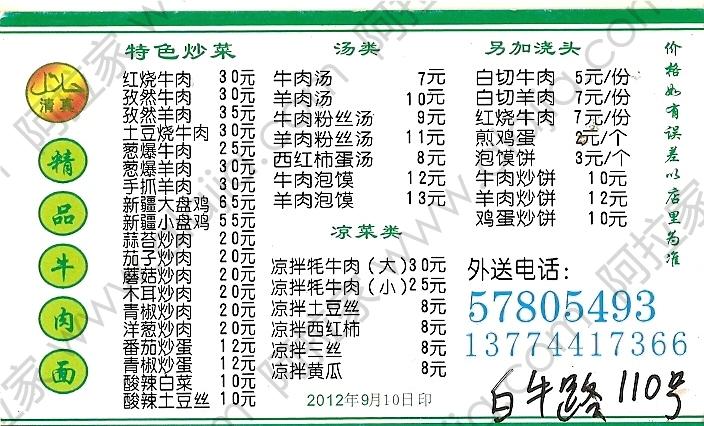 حلال
清真
精品牛肉面
特色炒菜
红烧牛肉 30元
孜然牛肉 30元
孜然羊肉 35元
土豆烧牛肉 30元
葱爆牛肉 25元
葱爆羊肉 30元
手抓羊肉 30元
新疆大盘鸡 65元
新疆小盘鸡 55元
蒜苔炒肉 20元
茄子炒肉 20元
蘑菇炒肉 20元
木耳炒肉 20元
青椒炒肉 20元
洋葱炒肉 20元
番茄炒蛋 12元
青椒炒蛋 12元
酸辣白菜 10元
酸辣土豆丝 10元
汤类
牛肉汤 7元
羊肉汤 10元
牛肉粉丝汤 9元
羊肉粉丝汤 11元
西红柿蛋汤 8元
牛肉泡馍 12元
羊肉泡馍 13元
凉菜类
凉拌牦牛肉(大)30元
凉拌牦牛肉(小)25元
凉拌土豆丝 8元
凉拌西红柿 8元
凉拌三丝 8元
凉拌黄瓜 8元
2012年9月10日印
另加浇头
白切牛肉 5元/份
白切羊肉 7元/份
红烧牛肉 7元/份
煎鸡蛋 2元/个
泡馍饼 3元/个
牛肉炒饼 10元
羊肉炒饼 12元
鸡蛋炒饼 10元
外送电话:
57805493
13774417366
白牛路110号
价格如有误差以店里为准